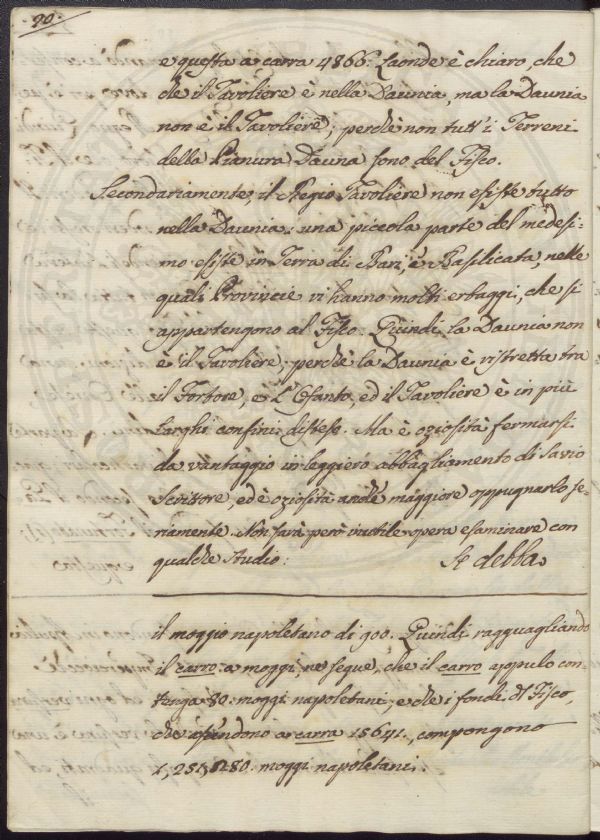 90.
e questa a carra 4866. Laonde è chiaro, che
che il Tavoliere è nella Daunia, ma la Daunia
non è il Tavoliere; perchè non tutt'i Terreni
della Pianura Dauna sono del Fisco.
Secondariamente, il Regio Tavoliere non esiste tutto
nella Daunia: una piccola parte del medesi-
mo esiste in Terra di Bari, e Basilicata, nelle
quali Provincie vi hanno molti erbaggi, che si
appartengono al Fisco. Quindi la Daunia non
è il Tavoliere, perchè la Daunia è ristretta tra
il Fortore, e L'Ofanto, ed il Tavoliere è in più
larghi confini disteso. Ma è oziosità fermarsi
da vantaggio in leggiero abbagliamento di savio
Scrittore, ed è oziosità anche maggiore oppugnarlo se-
riamente. Non sarà però inutile opera esaminare con
qualche studio:
Se debba
il moggio napoletano di 900. Quindi ragguagliando
il carro a moggi, ne segue, che il carro appulo con-
tenga 80. moggi napoletani, e che i fondi del Fisco,
che ascendono a carra 15641., compongono
1,251,280. moggi napoletani.